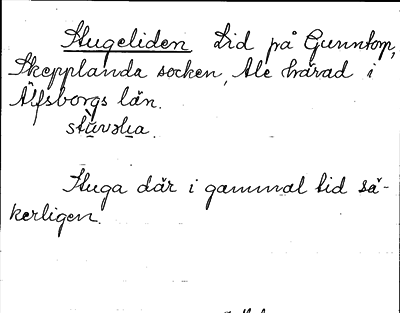 Stugeliden Lid på Gunntorp,
Skepplanda socken, Ale härad i
Älfsborgs län.

Stuga där i gammal tid sä-
kerligen.